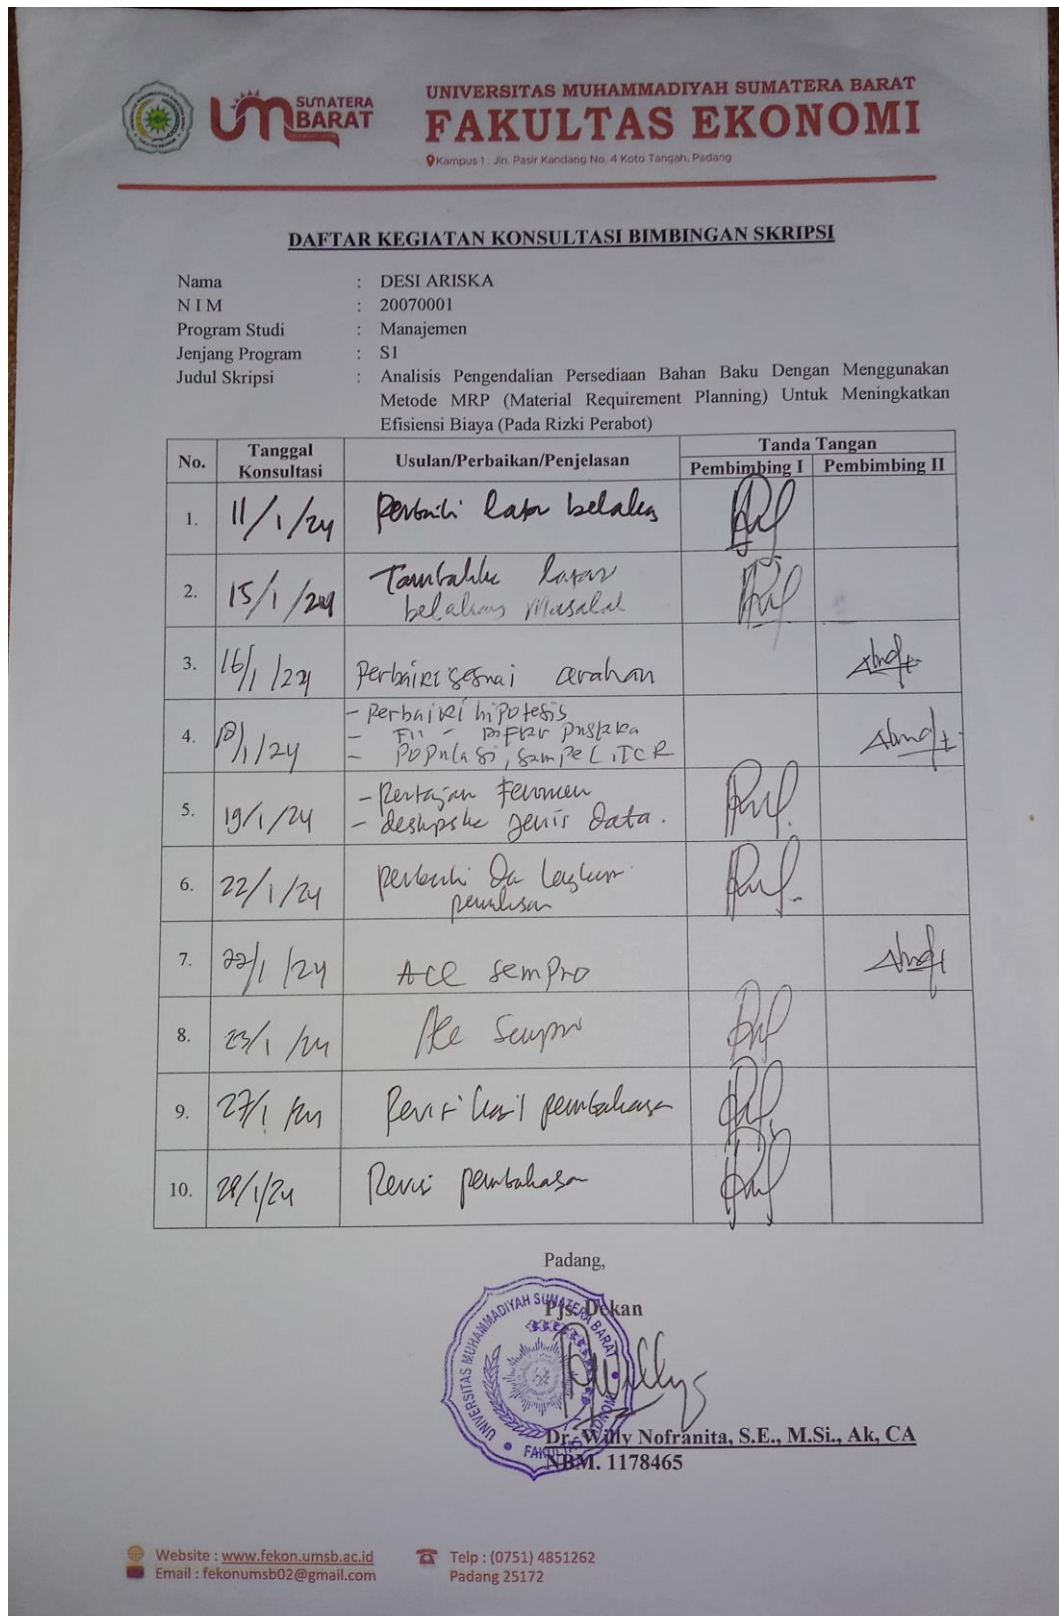 UM SUMATERA BARAT
UNIVERSITAS MUHAMMADIYAH SUMATERA BARAT
FAKULTAS EKONOMI
Kampus 1 : Jln. Pasir Kandang No. 4 Koto Tangah, Padang
DAFTAR KEGIATAN KONSULTASI BIMBINGAN SKRIPSI
Nama : DESI ARISKA
N I M : 20070001
Program Studi : Manajemen
Jenjang Program : S1
Judul Skripsi : Analisis Pengendalian Persediaan Bahan Baku Dengan Menggunakan
Metode MRP (Material Requirement Planning) Untuk Meningkatkan
Efisiensi Biaya (Pada Rizki Perabot)
No. Tanggal Konsultasi Usulan/Perbaikan/Penjelasan Tanda Tangan
Pembimbing I Pembimbing II
1. 11/1/24 Perbaiki latar belakang
2. 15/1/24 Tambahkan latar
belakang Masalah
3. 16/1/24 Perbaiki sesuai arahan
4. /1/24 - Perbaiki hipotesis
- Daftar pustaka
- Populasi, sampel, TCR
5. 19/1/24 - Pertajam Fenomena
- deskripsikan jenis data.
6. 22/1/24 perbaiki
penulisan
7. 22/1/24 ACC sempro
8. 23/1/24 Acc Sempro
9. 27/1/24 Revisi hasil pembahasan
10. 29/1/24 Revisi pembahasan
Padang,
Pjs. Dekan
UNIVERSITAS MUHAMMADIYAH SUMATERA BARAT
FAKULTAS EKONOMI
Dr. Willy Nofranita, S.E., M.Si., Ak, CA
NBM. 1178465
Website : www.fekon.umsb.ac.id Telp : (0751) 4851262
Email : fekonumsb02@gmail.com Padang 25172